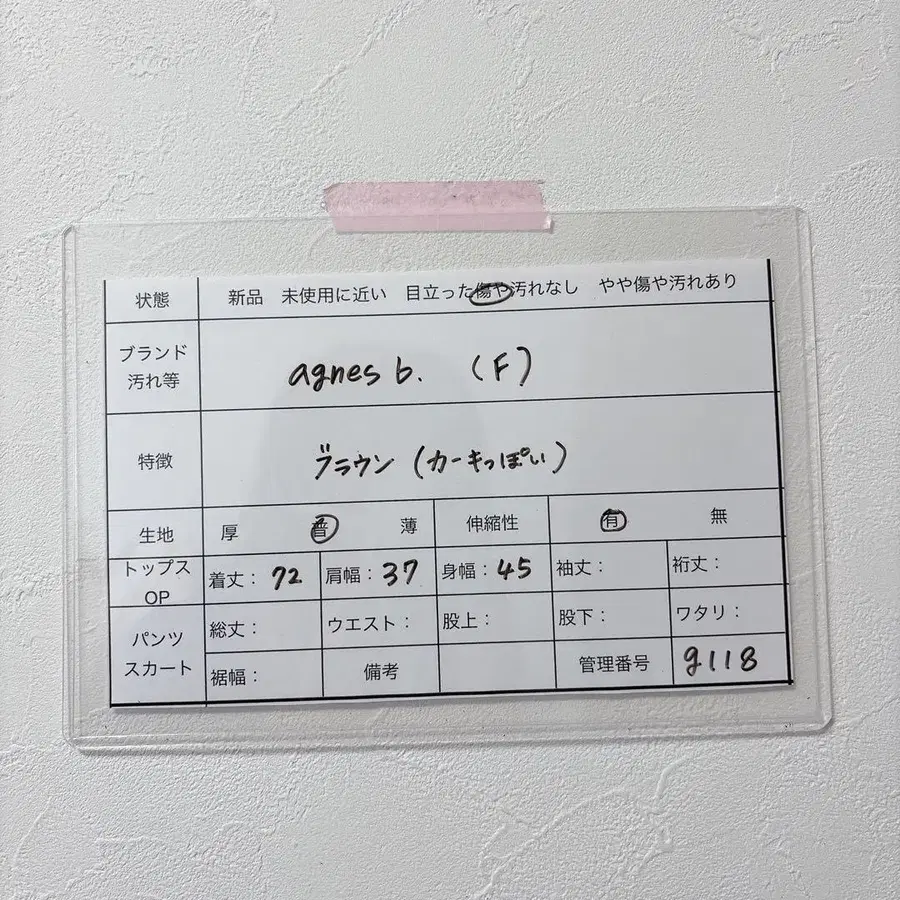 状態 新品 未使用に近い 目立った傷や汚れなし やや傷や汚れあり
ブランド
汚れ等
agnes b. (F)
特徴 ブラウン (カーキっぽい)
生地 厚 普 薄 伸縮性 有 無
トップス
OP
着丈: 72 肩幅: 37 身幅: 45 袖丈: 裄丈:
パンツ
スカート
総丈: ウエスト: 股上: 股下: ワタリ:
裾幅: 備考 管理番号 g118